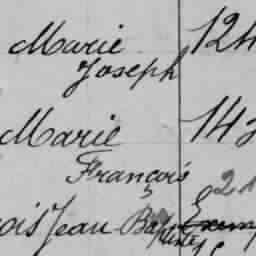 Marie 124
Joseph
Marie 142
François 21
ois Jean Baptiste